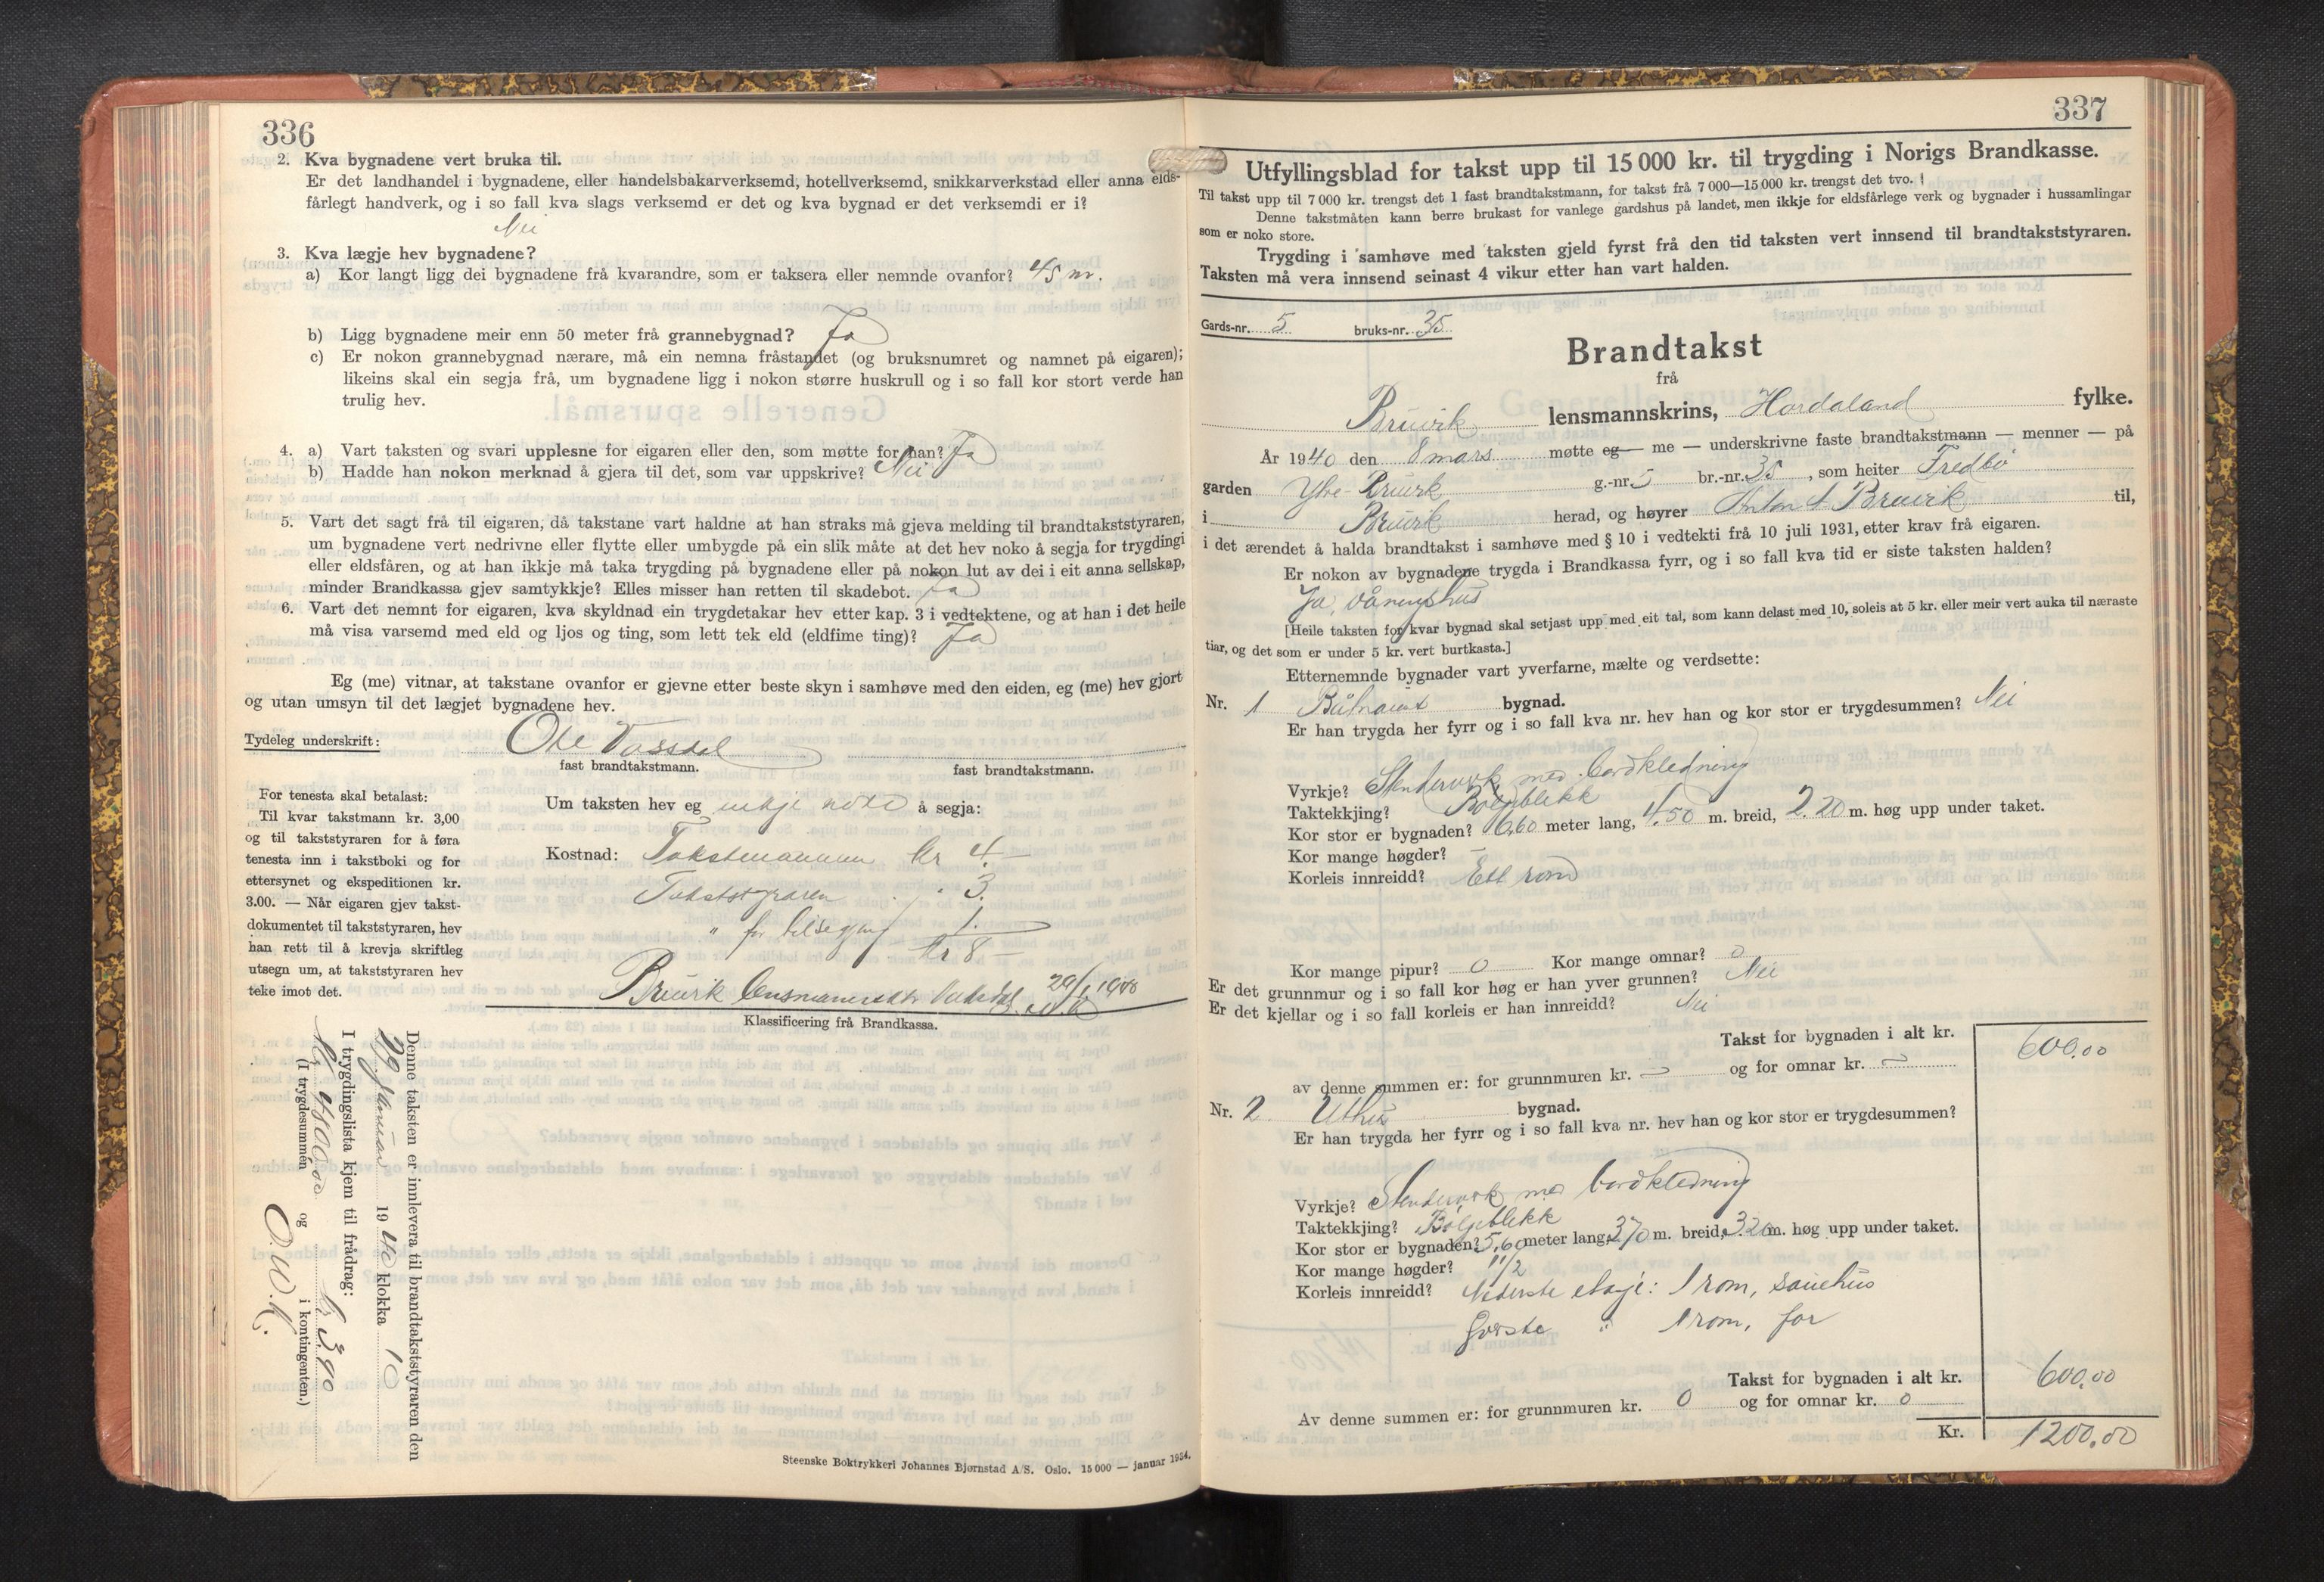 336
2. Kva bygnadene vert bruka til.
Er det landhandel i bygnadene, eller handelsbakarverksemd, hotellverksemd, snikkarverkstad eller anna elds-
fårlegt handverk, og i so fall kva slags verksemd er det og kva bygnad er det verksemdi er i?
Nei
3. Kva lægje hev bygnadene?
a) Kor langt ligg dei bygnadene frå kvarandre, som er taksera eller nemnde ovanfor? 45 m.
b) Ligg bygnadene meir enn 50 meter frå grannebygnad? Ja
c) Er nokon grannebygnad nærare, må ein nemna fråstandet (og bruksnumret og namnet på eigaren);
likeins skal ein segja frå, um bygnadene ligg i nokon større huskrull og i so fall kor stort verde han
trulig hev.
4. a) Vart taksten og svari upplesne for eigaren eller den, som møtte for han? Ja
b) Hadde han nokon merknad å gjera til det, som var uppskrive? Nei
5. Vart det sagt frå til eigaren, då takstane vart haldne at han straks må gjeva melding til brandtakststyraren,
um bygnadene vert nedrivne eller flytte eller umbygde på ein slik måte at det hev noko å segja for trygdingi
eller eldsfåren, og at han ikkje må taka trygding på bygnadene eller på nokon lut av dei i eit anna sellskap,
minder Brandkassa gjev samtykkje? Elles misser han retten til skadebot. Ja
6. Vart det nemnt for eigaren, kva skyldnad ein trygdetakar hev etter kap. 3 i vedtektene, og at han i det heile
må visa varsemd med eld og ljos og ting, som lett tek eld (eldfime ting)? Ja
Eg (me) vitnar, at takstane ovanfor er gjevne etter beste skyn i samhøve med den eiden, eg (me) hev gjort
og utan umsyn til det lægjet bygnadene hev.
Tydeleg underskrift: Ole Vassdal
fast brandtakstmann. fast brandtakstmann.
For tenesta skal betalast:
Til kvar takstmann kr. 3,00
og til takststyraren for å føra
tenesta inn i takstboki og for
ettersynet og ekspeditionen kr.
3.00. — Når eigaren gjev takst-
dokumentet til takststyraren, hev
han rett til å krevja skriftleg
utsegn um, at takststyraren hev
teke imot det.
Um taksten hev eg inkje å segja:
Kostnad: Takstmannen kr 4.—
Takststyraren . 3.
" for 1.
kr 8 —
Bruvik 29/1
Klassificering frå Brandkassa.
Denne taksten er innlevera til brandtakststyraren den
29 januar 1940 klokka 10
I trygdingslista kjem til frådrag:
(I trygdesummen og i kontingenten.)
kr 3,90
Steenske Boktrykkeri Johannes Bjørnstad A/S. Oslo. 15 000 — januar 1934.
337
Utfyllingsblad for takst upp til 15 000 kr. til trygding i Norigs Brandkasse.
Til takst upp til 7 000 kr. trengst det 1 fast brandtakstmann, for takst frå 7 000—15 000 kr. trengst det tvo.
Denne takstmåten kann berre brukast for vanlege gardshus på landet, men ikkje for eldsfårlege verk og bygnader i hussamlingar
som er noko store.
Trygding i samhøve med taksten gjeld fyrst frå den tid taksten vert innsend til brandtakststyraren.
Taksten må vera innsend seinast 4 vikur etter han vart halden.
Gards-nr. 5 bruks-nr. 35
Brandtakst
frå
Bruvik lensmannskrins, Hordaland fylke.
År 1940 den 8 mars møtte eg — me — underskrivne faste brandtakstmann — menner — på
garden Ytre-Bruvik g.-nr. 5 br.-nr. 35, som heiter Fredbo
i Bruvik herad, og høyrer Anton A Bruvik til,
i det ærendet å halda brandtakst i samhøve med § 10 i vedtekti frå 10 juli 1931, etter krav frå eigaren.
Er nokon av bygnadene trygda i Brandkassa fyrr, og i so fall kva tid er siste taksten halden?
Ja, våningshus
[Heile taksten for kvar bygnad skal setjast upp med eit tal, som kann delast med 10, soleis at 5 kr. eller meir vert auka til næraste
tiar, og det som er under 5 kr. vert burtkasta.]
Etternemnde bygnader vart yverfarne, mælte og verdsette:
Nr. 1 Båtnaust bygnad.
Er han trygda her fyrr og i so fall kva nr. hev han og kor stor er trygdesummen? Nei
Vyrkje? Stenderverk med bordkledning
Taktekkjing? Bølgeblikk
Kor stor er bygnaden? 6,60 meter lang, 4.50 m. breid, 2.20 m. høg upp under taket.
Kor mange høgder? —
Korleis innreidd? Ett rom
Kor mange pipur? 0 Kor mange omnar? 0
Er det grunnmur og i so fall kor høg er han yver grunnen? Nei
Er det kjellar og i so fall korleis er han innreidd? Nei
Takst for bygnaden i alt kr. 600,00
av denne summen er: for grunnmuren kr. — og for omnar kr. —
Nr. 2 Uthus bygnad.
Er han trygda her fyrr og i so fall kva nr. hev han og kor stor er trygdesummen?
Vyrkje? Stenderverk med bordkledning
Taktekkjing? Bølgeblikk
Kor stor er bygnaden? 5,60 meter lang, 3,70 m. breid, 3.20 m. høg upp under taket.
Kor mange høgder? 1 1/2
Korleis innreidd? Nederste etasje: 1 rom, sauehus
Øverste " 1 rom, for
Takst for bygnaden i alt kr. 600,00
Av denne summen er: for grunnmuren kr. 0 og for omnar kr. 0
Kr. 1200,00